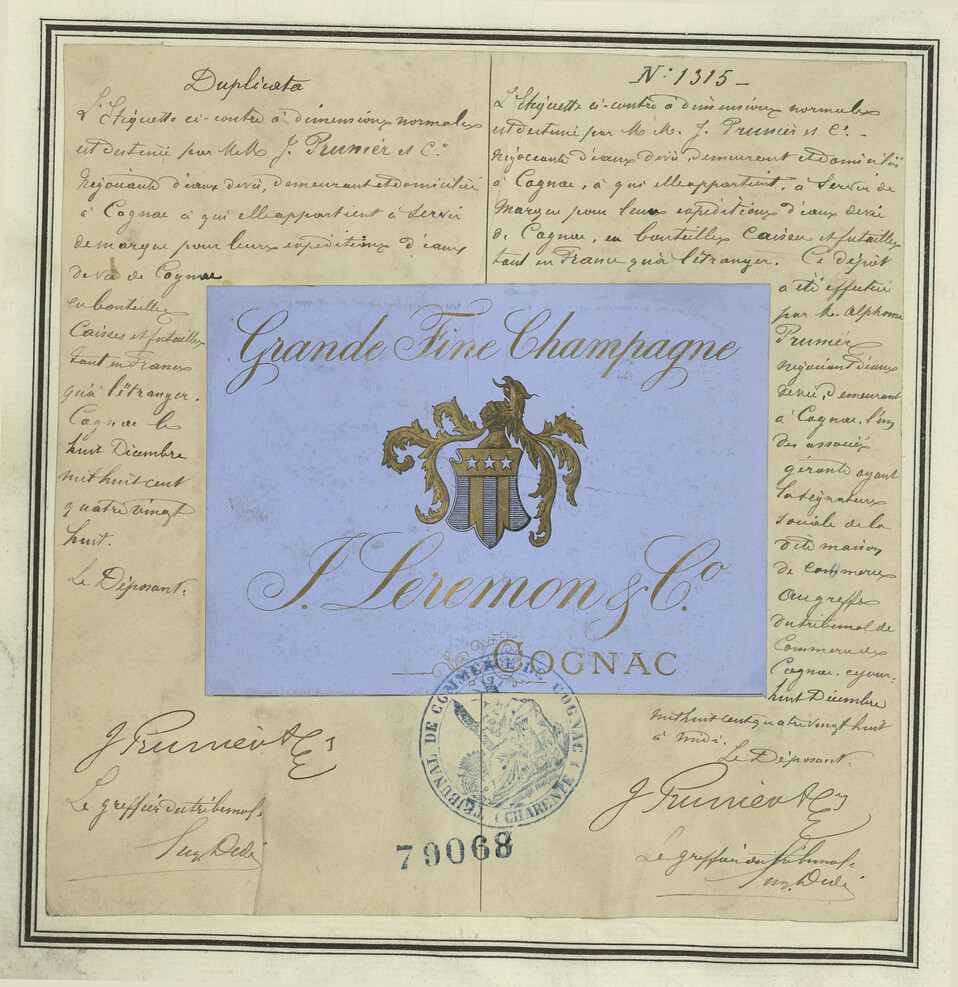 Duplicata
L'Etiquette ci-contre à dimensions normales
est destinée par M.M. J. Prunier et Co
négociants d'eaux de vie, demeurant et domiciliés
à Cognac à qui elle appartient à servir
de marque pour leurs expéditions d'eaux
de vie de Cognac
en bouteilles
Caisses et futailles
tant en France
qu'à l'étranger.
Cognac le
huit Décembre
mil huit cent
quatre vingt
huit.
Le Déposant.
J Prunier & Co
Le greffier du tribunal.
No 1315 -
L'Etiquette ci-contre à dimensions normales
est destinée par M.M. J. Prunier et Co. -
négociants d'eaux de vie, demeurant et domiciliés
à Cognac, à qui elle appartient, à servir de
Marque pour leurs expéditions d'eaux de vie
de Cognac, en bouteilles Caisses et futailles
tant en France qu'à l'étranger. Ce dépôt
a été effectué
par M. Alphonse
Prunier
négociant d'eaux
de vie, demeurant
à Cognac, l'un
des associés
gérants ayant
la signature
sociale de la
dite maison
de Commerce
au greffe
du tribunal de
Commerce de
Cognac, ce jour-
huit Décembre
mil huit cent quatre vingt huit
à midi.
Le Déposant.
J Prunier & Co
Le greffier du tribunal.
Grande Fine Champagne
J. Leremon & Co.
COGNAC
TRIBUNAL DE COMMERCE DE COGNAC
(CHARENTE)
79068